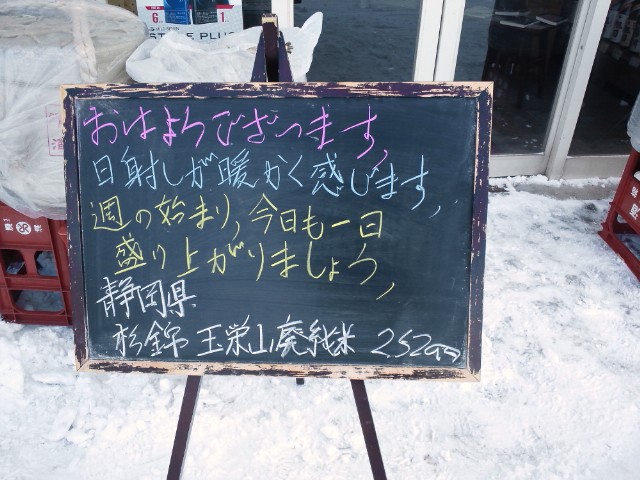 おはようございます、
日射しが暖かく感じます、
週の始まり、今日も一日
盛り上がりましょう、
静岡県
杉錦 玉栄山廃純米 2520円
酒
6